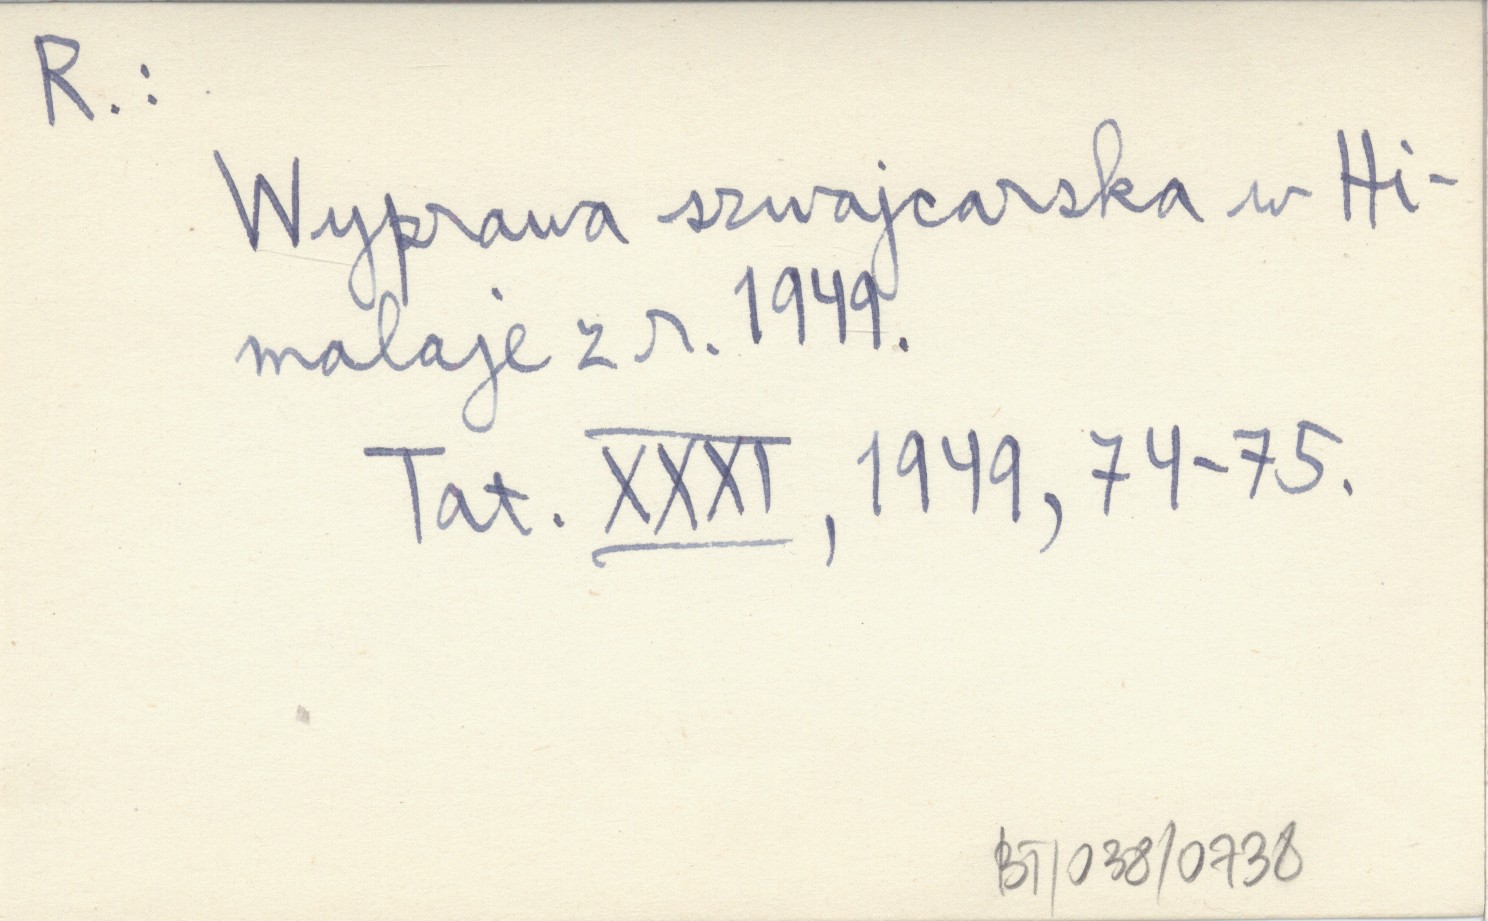 R.:
Wyprawa szwajcarska w Hi-
malaje z r. 1949.
Tat. XXXI, 1949, 74-75.
BT/038/0738